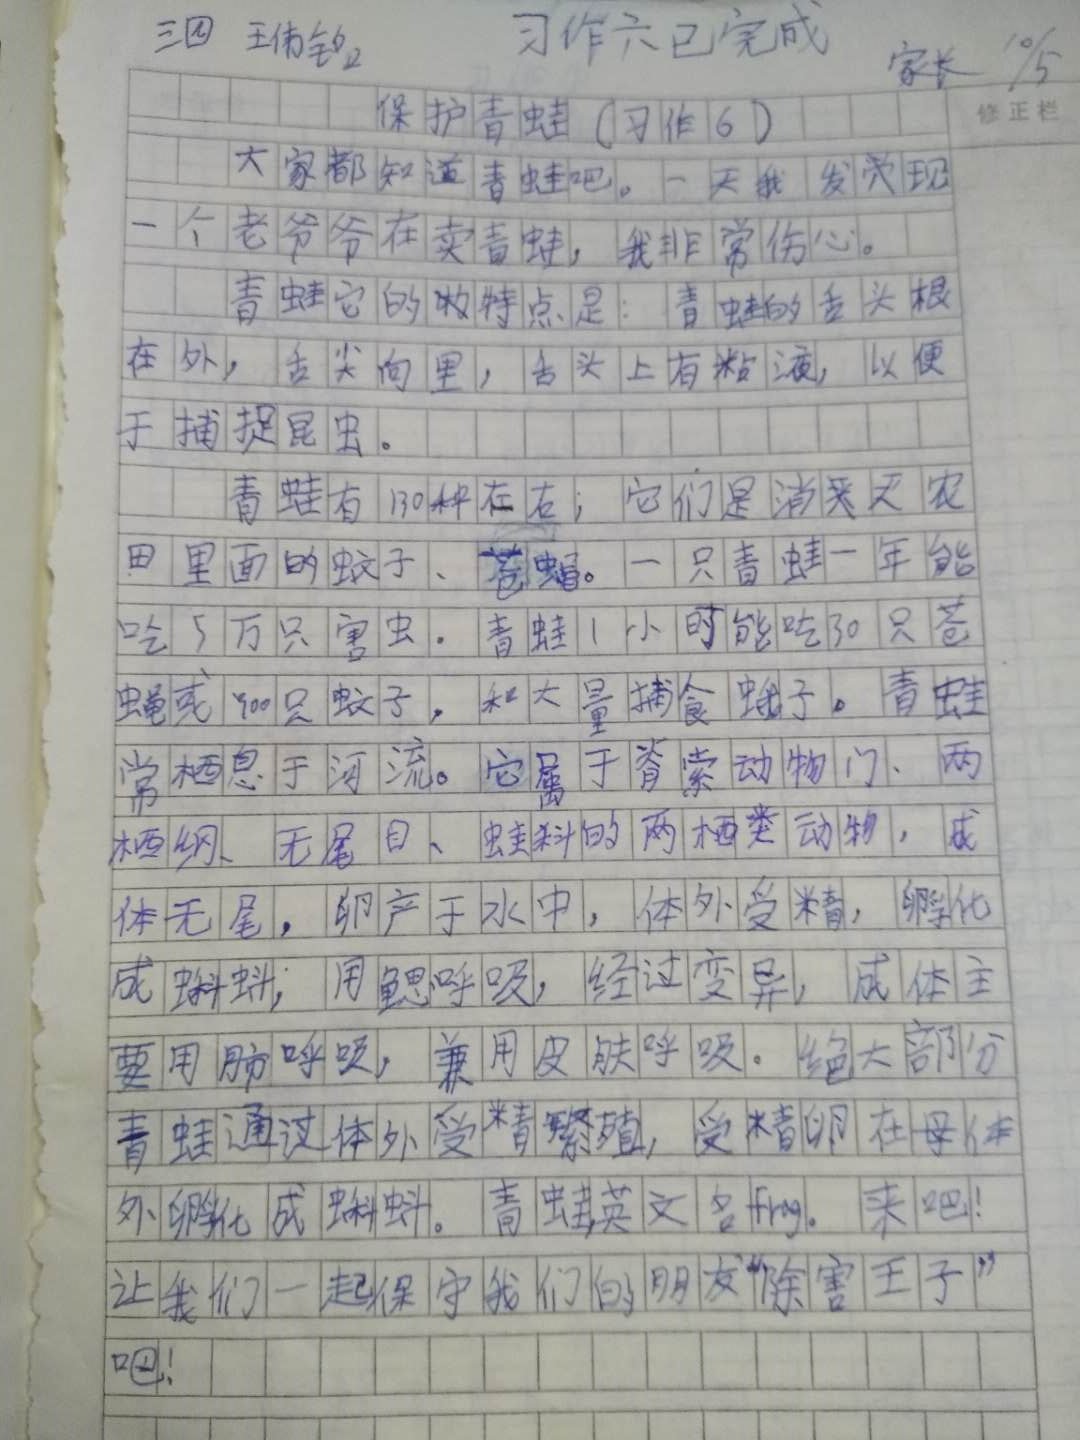 三四 王伟 习作六已完成
家长 10/5
修正栏
保护青蛙(习作6)
大家都知道青蛙吧。一天我发觉现
一个老爷爷在卖青蛙，我非常伤心。
青蛙它的特点是：青蛙的舌头根
在外，舌尖向里，舌头上有粘液，以便
于捕捉昆虫。
青蛙有130种左右；它们是消灭农
田里面的蚊子、苍蝇。一只青蛙一年能
吃5万只害虫。青蛙1小时能吃30只苍
蝇或400只蚊子，和大量捕食蛾子。青蛙
常栖息于河流。它属于脊索动物门、两
栖纲、无尾目、蛙科的两栖类动物，成
体无尾，卵产于水中，体外受精，孵化
成蝌蚪；用鳃呼吸，经过变异，成体主
要用肺呼吸，兼用皮肤呼吸。绝大部分
青蛙通过体外受精繁殖，受精卵在母体
外孵化成蝌蚪。青蛙英文名frog。来吧！
让我们一起保守我们的朋友“除害王子”
吧！